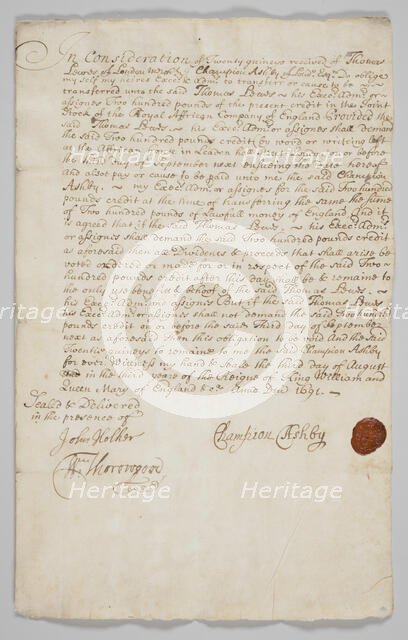 In Consideration of Twenty guineas received of Thomas
Lewes of London Merch.t I Champion Ashby of Lond. Esq.r Do oblige
my self my heires Exec.rs & Adm.rs to transferr or cause to be
transferred unto the said Thomas Lewes ~ his Exec.rs Adm.rs or
assignes Two hundred pounds of the present credit in the Joint
Stock of the Royal African Company of England Provided the
said Thomas Lewes ~ his Exec.rs Adm.rs or assignes shall demand
the said Two hundred pounds credit by word or writing left
at the African house in Leaden hall street London at or before
the Third day of September next ensuing the date hereof
and also pay or cause to be paid unto me the said Champion
Ashby ~ my Exec.rs Adm.rs or assignes for the said Two hundred
pounds credit at the time of transferring the same the sume
of Two hundred pounds of Lawfull money of England And it
is agreed that if the said Thomas Lewes ~ his Exec.rs Adm.rs
or assignes shall demand the said Two hundred pounds credit
as aforesaid then all Dividends & proceeds that shall arise be
voted ordered or made for or in respect of the said Two
hundred pounds credit after this day shall be & remaine to
the only use and behoof of the said Thomas Lewes ~
his Exec.rs Adm.rs and assignes But if the said Thomas Lewes
his Exec.rs Adm.rs or assignes shall not demand the said Two hundred
pounds credit on or before the said Third day of September
next as aforesaid Then this obligation to be void And the said
Twenty guineys to remaine to me the said Champion Ashby
for ever. Witness my hand & seale the third day of August
in the third yeare of the Reigne of King William and
Queen Mary of England &c.a Anno Dni 1691 ~
Sealed & Delivered
in the presence of
John Holker
Champion Ashby
Tho: Thorowgood
Heritage
Heritage
Heritage
Heritage
Heritage
Heritage
Heritage
Heritage
©